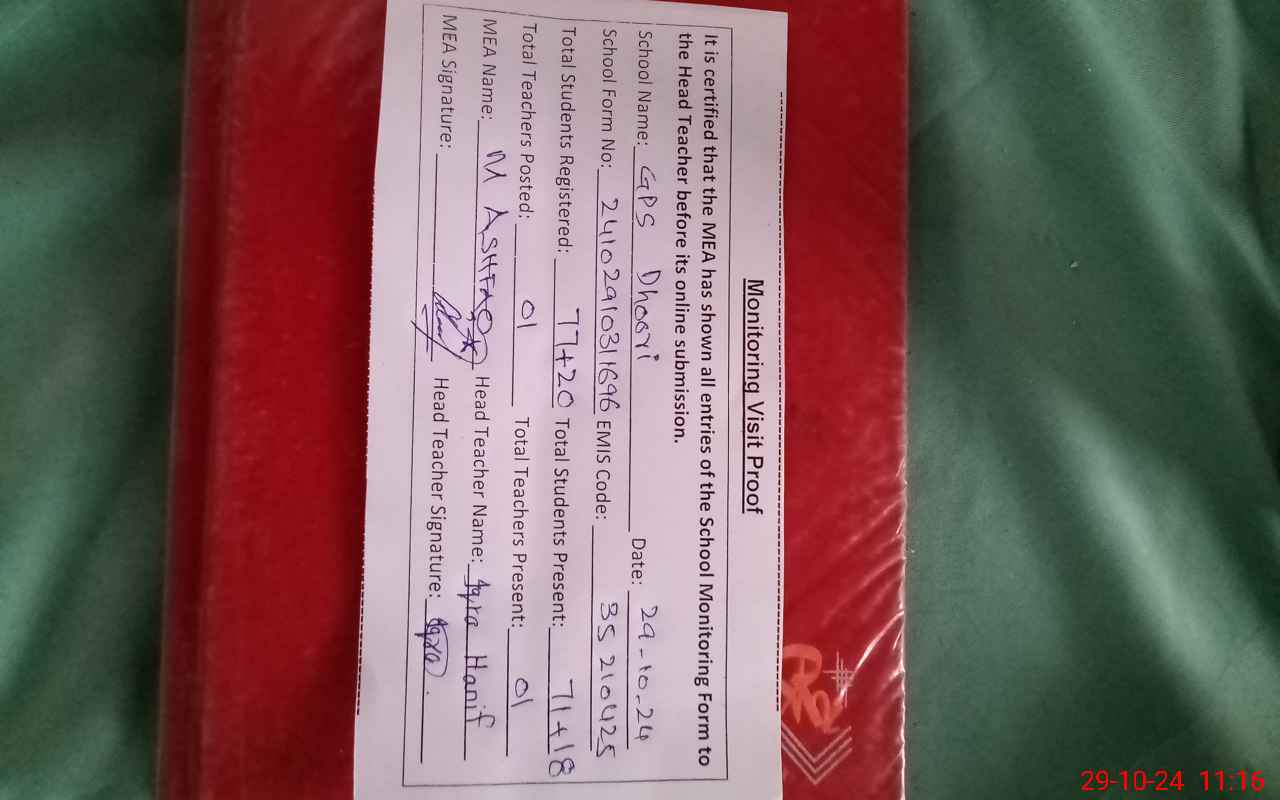 Monitoring Visit Proof
It is certified that the MEA has shown all entries of the School Monitoring Form to
the Head Teacher before its online submission.
School Name: GPS Dhoori Date: 29-10-24
School Form No: 24102910311696 EMIS Code: 35210425
Total Students Registered: 77+20 Total Students Present: 71+18
Total Teachers Posted: 01 Total Teachers Present: 01
MEA Name: M ASHFAQ Head Teacher Name: Iqra Hanif
MEA Signature: Head Teacher Signature: Iqra
29-10-24 11:16